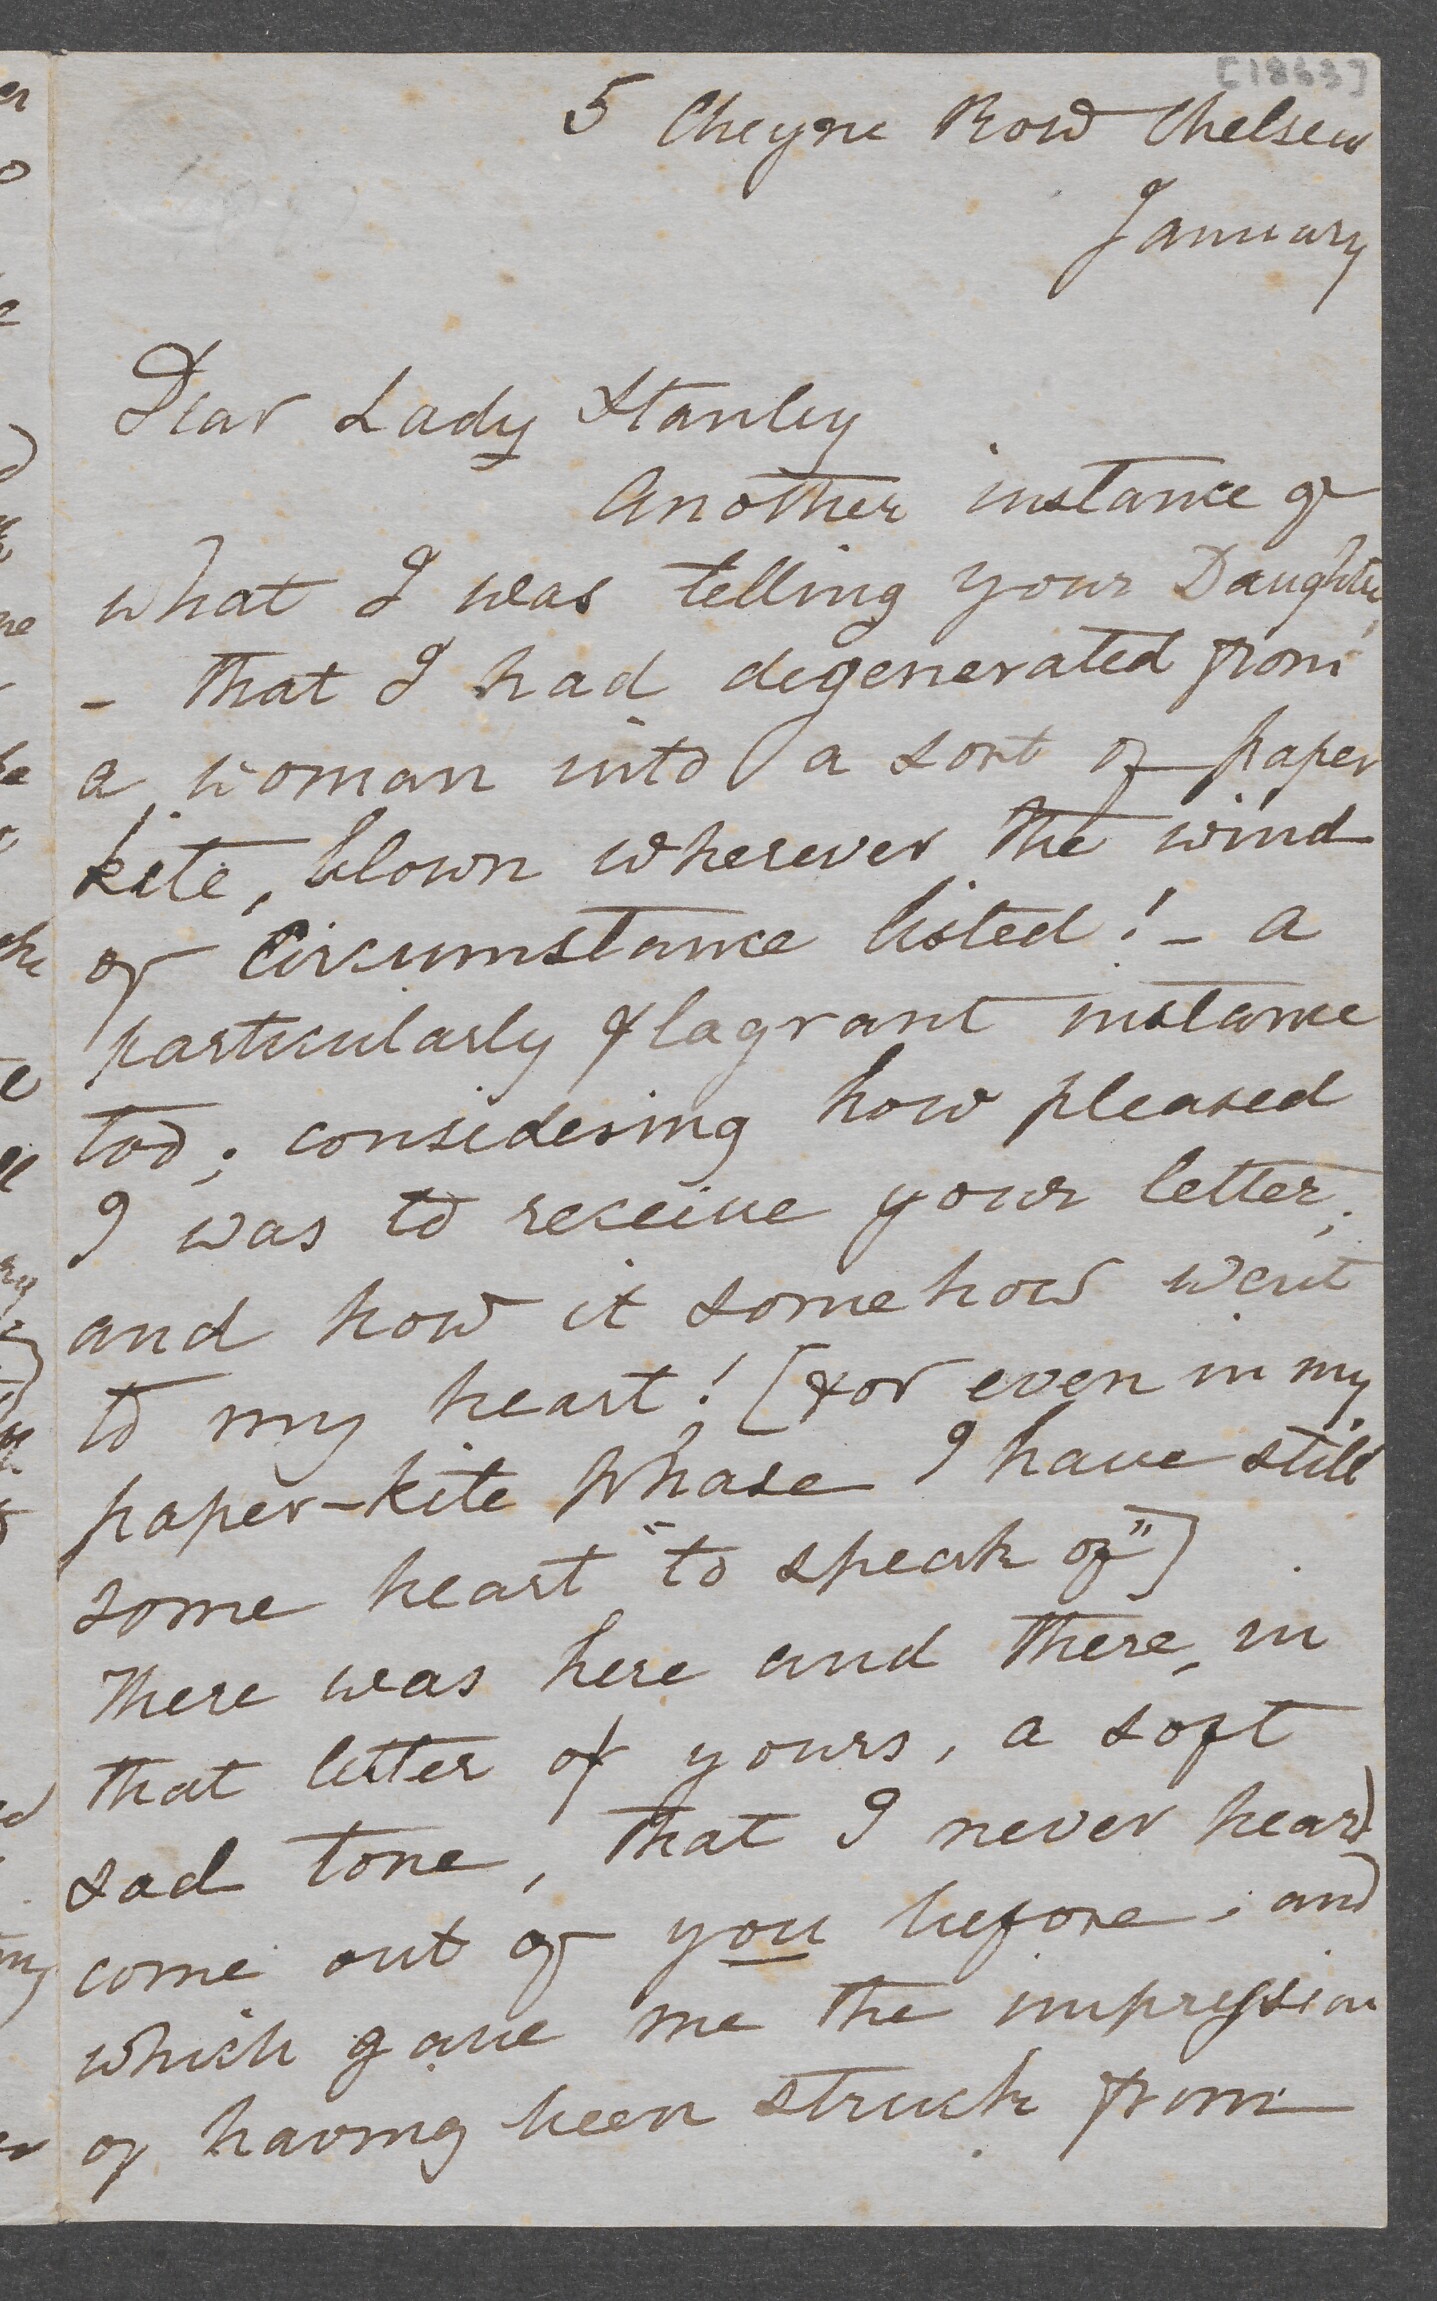 [1863]
5 Cheyne Row Chelsea
January
Dear Lady Stanley
Another instance of
what I was telling your Daughter,
- that I had degenerated from
a woman into a sort of paper
kite, blown wherever the wind
of Circumstance listed! - a
particularly flagrant instance
too; considering how pleased
I was to receive your letter;
and how it somehow went
to my heart! [for even in my
paper-kite phase I have still
some heart "to speak of"]
There was here and there, in
that letter of yours, a soft
sad tone, that I never heard
come out of you before; and
which gave me the impression
of having been struck from